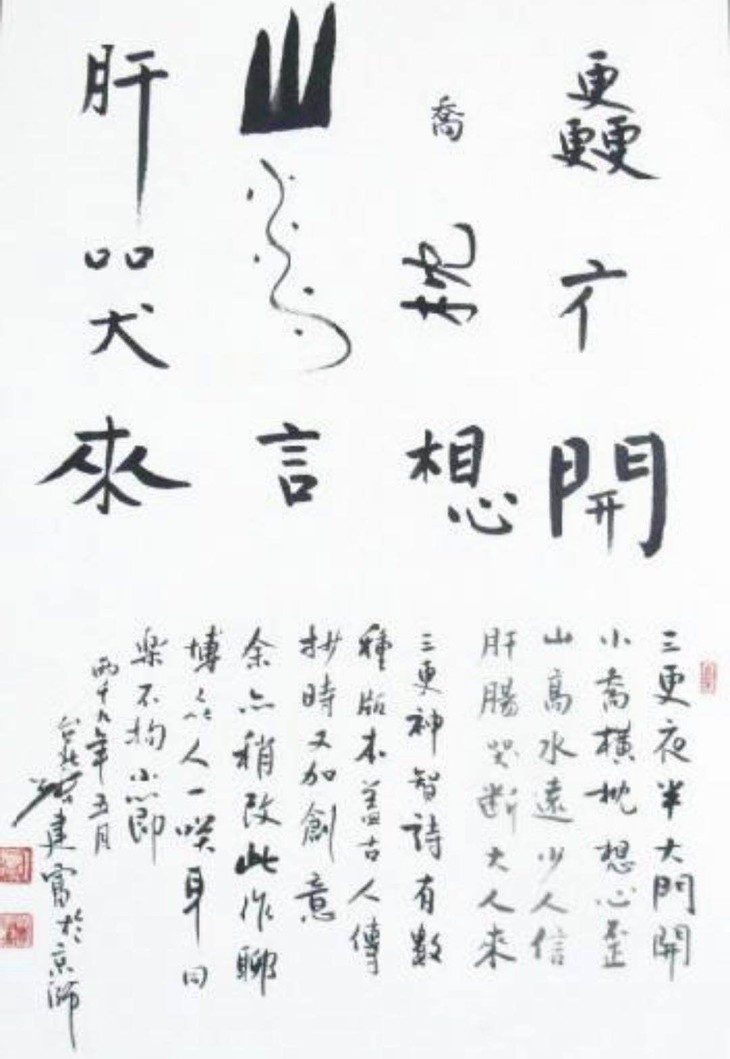 更更更 亠亻 開
喬 枕 想
山 言
肝 吅犬 來
三更夜半大門開
小喬橫枕想心歪
山高水遠少人信
肝腸哭斷大人來
三更神智詩有數
種版本蓋古人傳
抄時又加創意
余亦稍改此作聊
博众人一咲耳同
樂不拘小節
两千九年五月
台北建富於京師